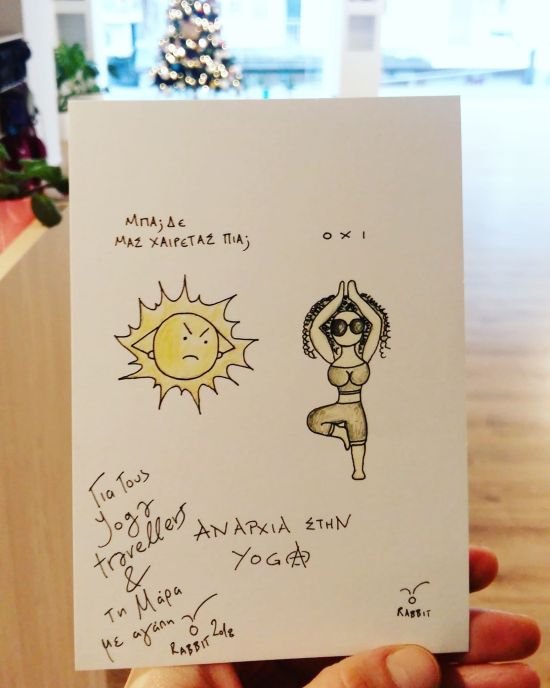 ΜΠΑ; ΔΕ
ΜΑΣ ΧΑΙΡΕΤΑΣ ΠΙΑ;
ΟΧΙ
Για τους
yoga
travellers
&
τη Μάρα
με αγάπη
RABBIT 2018
ΑΝΑΡΧΙΑ ΣΤΗΝ
YOGA
RABBIT